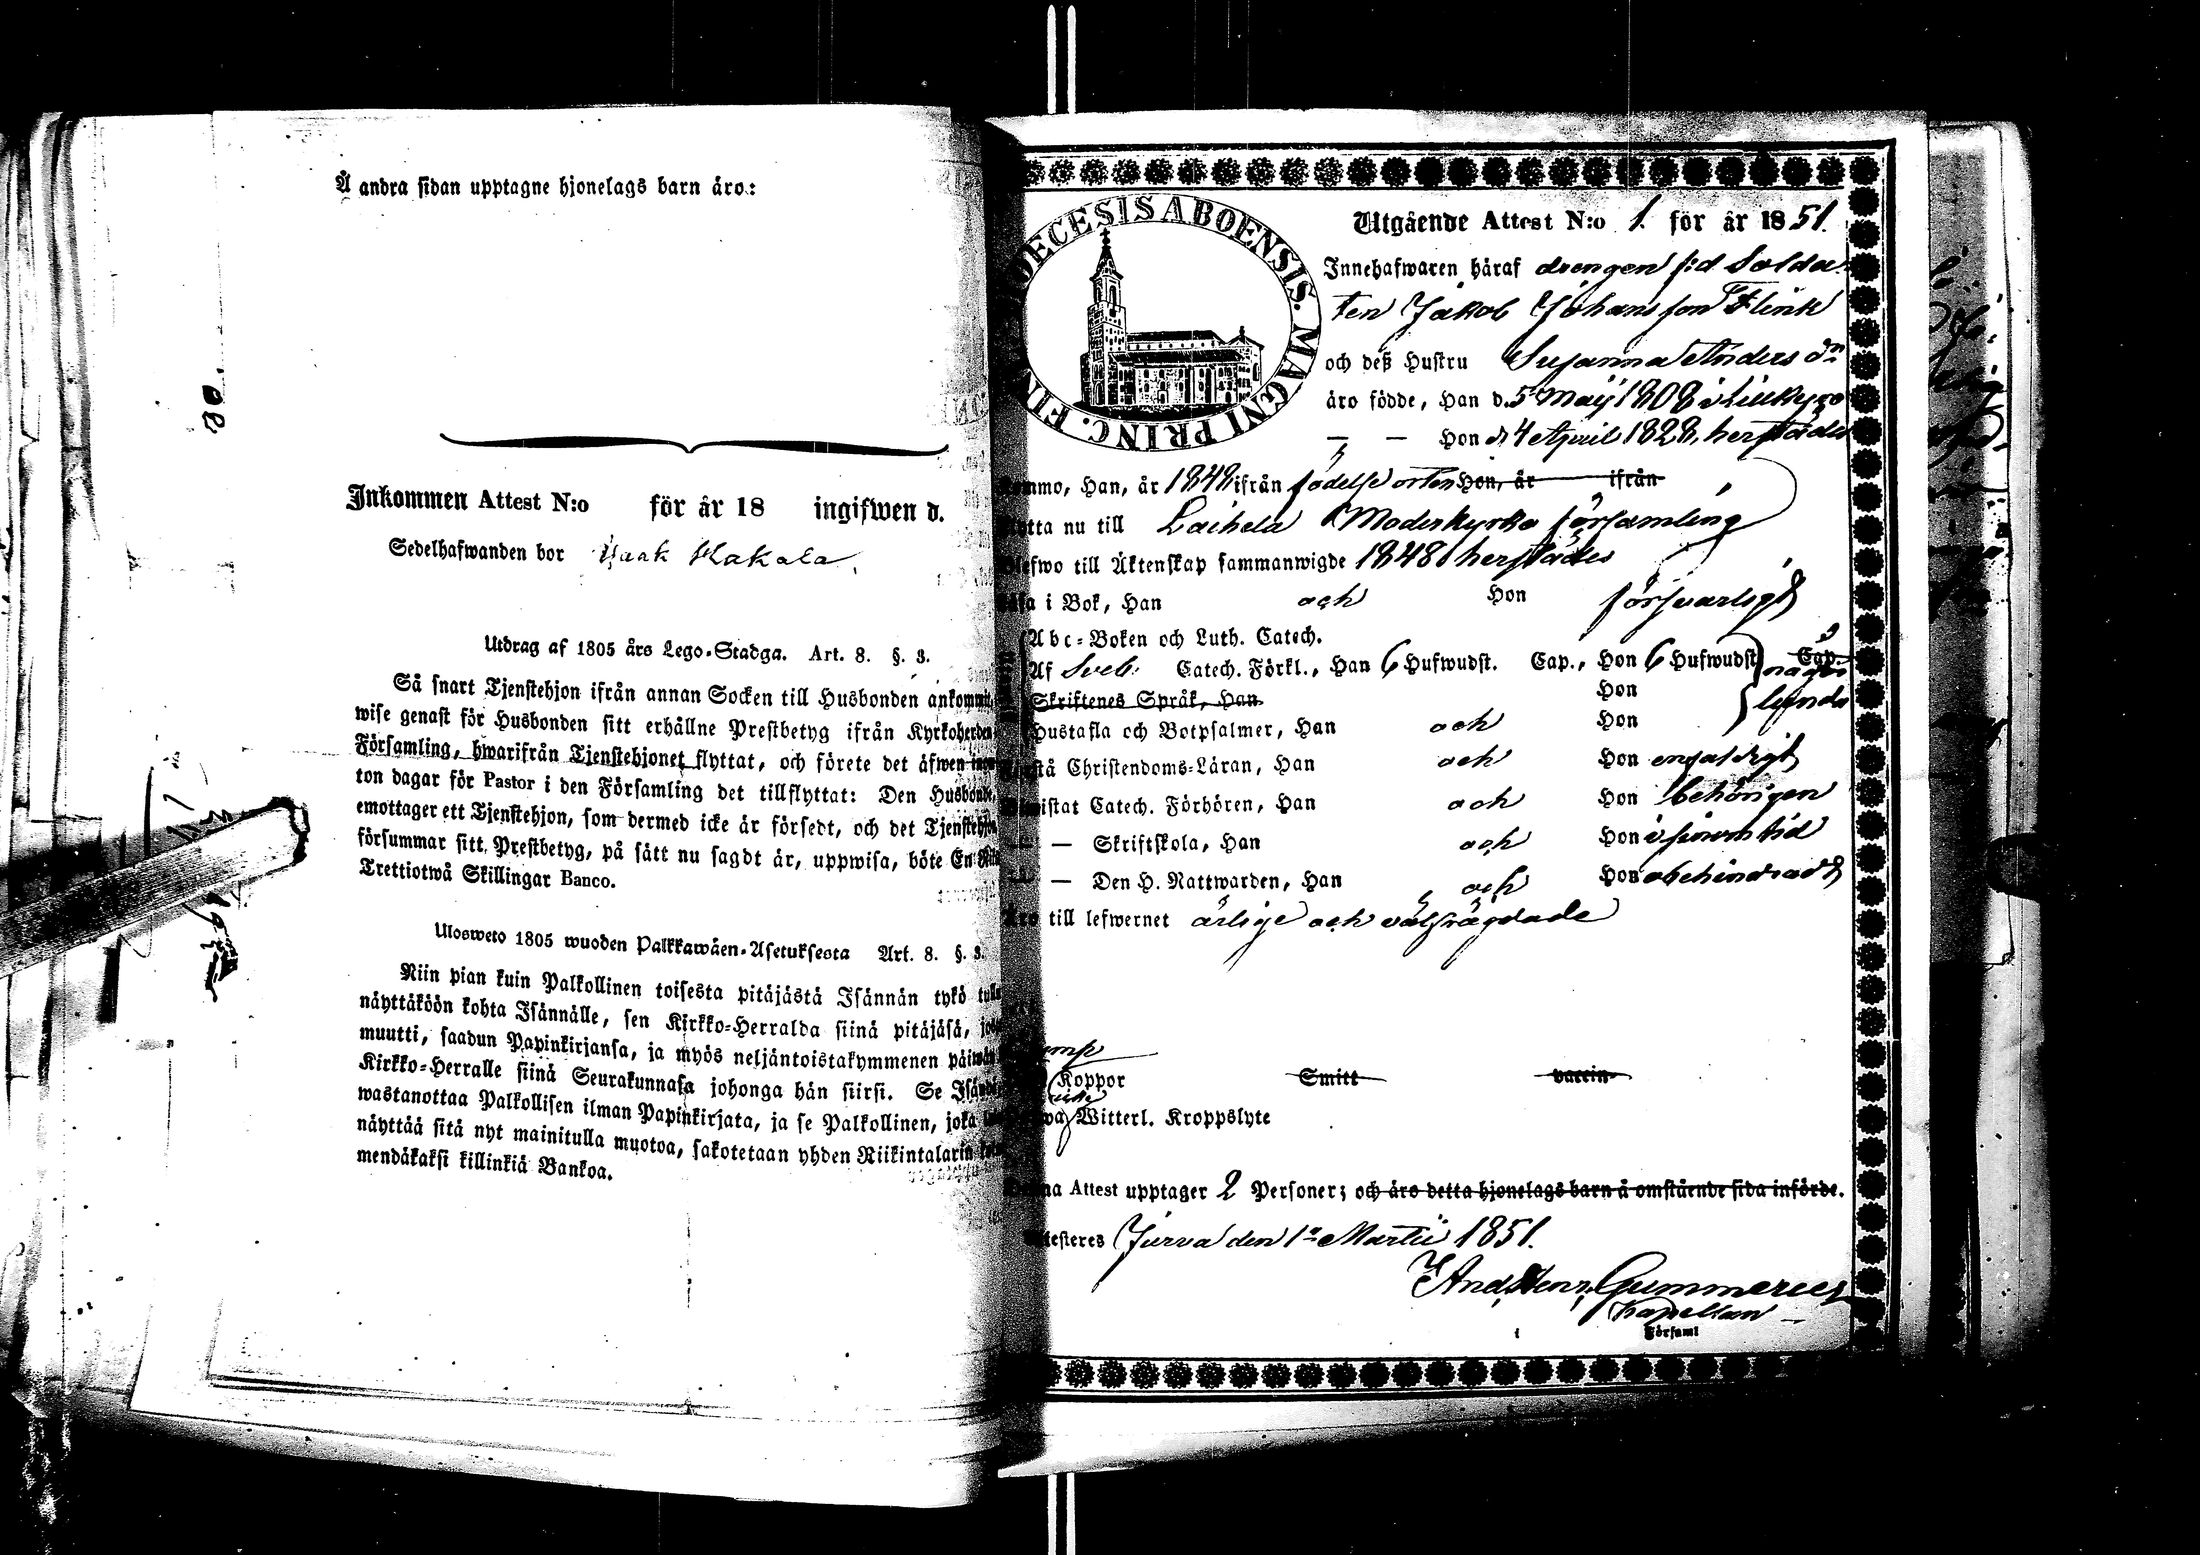 Å andra sidan upptagne hjonelags barn äro:
Inkommen Attest N:o för år 18 ingifwen d.
Sedelhafwanden bor Kakala
Utdrag af 1805 års Lego-Stadga. Art. 8. §. 3.
Så snart Tjenstehjon ifrån annan Socken till Husbonden
wise genast för Husbonden sitt erhållne Prestbetyg ifrån
Församling, hwarifrån Tjenstehjonet flyttat, och förete det äfwen
ton dagar för Pastor i den Församling det tillflyttat: Den
emottager ett Tjenstehjon, som dermed icke är försedt, och det
försummar sitt Prestbetyg, på sätt nu sagdt är, uppwisa, böte En
Trettiotwå Skillingar Banco.
Ulosweto 1805 wuoden Palkkawäen-Asetuksesta Art. 8. §. 3.
Niin pian kuin Palkollinen toisesta pitäjästä Isännän tykö
näyttäköön kohta Isännälle, sen Kirkko-Herralda siinä pitäjäsä,
muutti, saadun Papinkirjansa, ja myös neljäntoistakymmenen
Kirkko-Herralle siinä Seurakunnasa johonga hän siirsi. Se
wastanottaa Palkollisen ilman Papinkirjata, ja se Palkollinen, joka
näyttää sitä nyt mainitulla muotoa, sakotetaan yhden Riikintalarin
mendäkaksi killinkiä Bankoa.
80.
DIOECESIS ABOENSIS. MAGNI PRINC.
Utgående Attest N:o 1. för år 1851.
Innehafwaren häraf drengen f:d Solda
ten Jakob Johansson Flink
och deß Hustru Susanna Anders dn
äro födde, Han d. 5 Maij 1808 i
— — Hon d 4 April 1828, herstädes
Han, år 1848 ifrån födelse orten Hon, år ifrån
nu till Laihela Moderkyrko församling
till Äktenskap sammanwigde 1848 herstädes
i Bok, Han och Hon försvarligt
Abc-Boken och Luth. Catech.
Af Sveb. Catech. Förkl., Han 6 Hufwudst. Cap., Hon 6 Hufwudst. Cap.
någor
Skriftenes Språk, Han Hon lunda
Hustafla och Botpsalmer, Han och Hon
Christendoms-Läran, Han och Hon enfaldigt
Catech. Förhören, Han och Hon behörigen
— — Skriftskola, Han och Hon i sinom tid
— — Den H. Nattwarden, Han och Hon obehindradt
till lefwernet ärlige och välfrägdade
Koppor Smitt vaccin
Witterl. Kroppslyte
Attest upptager 2 Personer; och äro detta hjonelags barn å omstående sida införde.
Jurva den 1 Martii 1851.
And. Henr. Gummerus
Kapellan
i Församl